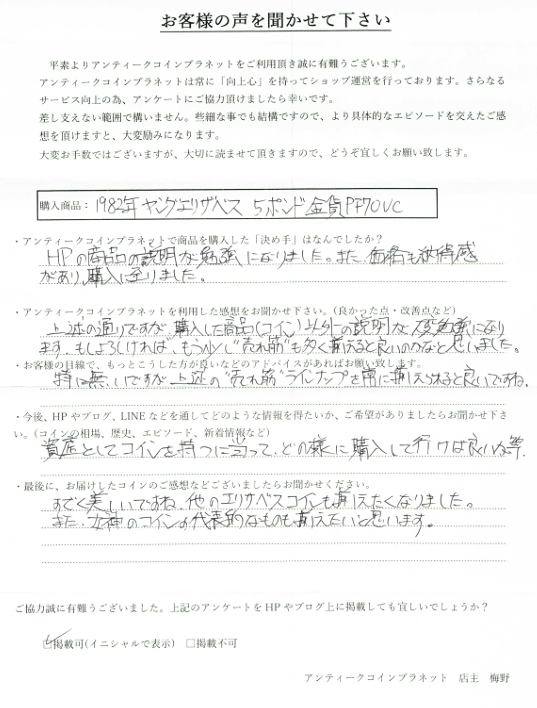 お客様の声を聞かせて下さい
平素よりアンティークコインプラネットをご利用頂き誠に有難うございます。
アンティークコインプラネットは常に「向上心」を持ってショップ運営を行っております。さらなる
サービス向上の為、アンケートにご協力頂けましたら幸いです。
差し支えない範囲で構いません。些細な事でも結構ですので、より具体的なエピソードを交えたご感
想を頂けますと、大変励みになります。
大変お手数ではございますが、大切に読ませて頂きますので、どうぞ宜しくお願い致します。
購入商品：1982年 ヤングエリザベス 5ポンド金貨PF70UC
・アンティークコインプラネットで商品を購入した「決め手」はなんでしたか？
HPの商品の説明が勉強になりました。また、価格も納得感
があり、購入に至りました。
・アンティークコインプラネットを利用した感想をお聞かせ下さい。（良かった点・改善点など）
上述の通りですが、購入した商品(コイン)以外の説明が大変勉強になり
ます。もしよろしければ、もう少し"売れ筋"も多く揃えると良いのかなと思いました。
・お客様の目線で、もっとこうした方が良いなどのアドバイスがあればお願い致します。
特に無いですが、上述の"売れ筋"ラインナップを常に揃えられると良いですね。
・今後、HPやブログ、LINEなどを通してどのような情報を得たいか、ご希望がありましたらお聞かせ下さ
い。（コインの相場、歴史、エピソード、新着情報など）
資産としてコインを持つに当って、どの様に購入して行けば良いか等。
・最後に、お届けしたコインのご感想などございましたらお聞かせください。
すごく美しいですね。他のエリザベスコインも揃えたくなりました。
また、女神のコインの代表的なものも揃えたいと思います。
ご協力誠に有難うございました。上記のアンケートをHPやブログ上に掲載しても宜しいでしょうか？
☑掲載可(イニシャルで表示) □掲載不可
アンティークコインプラネット 店主 梅野